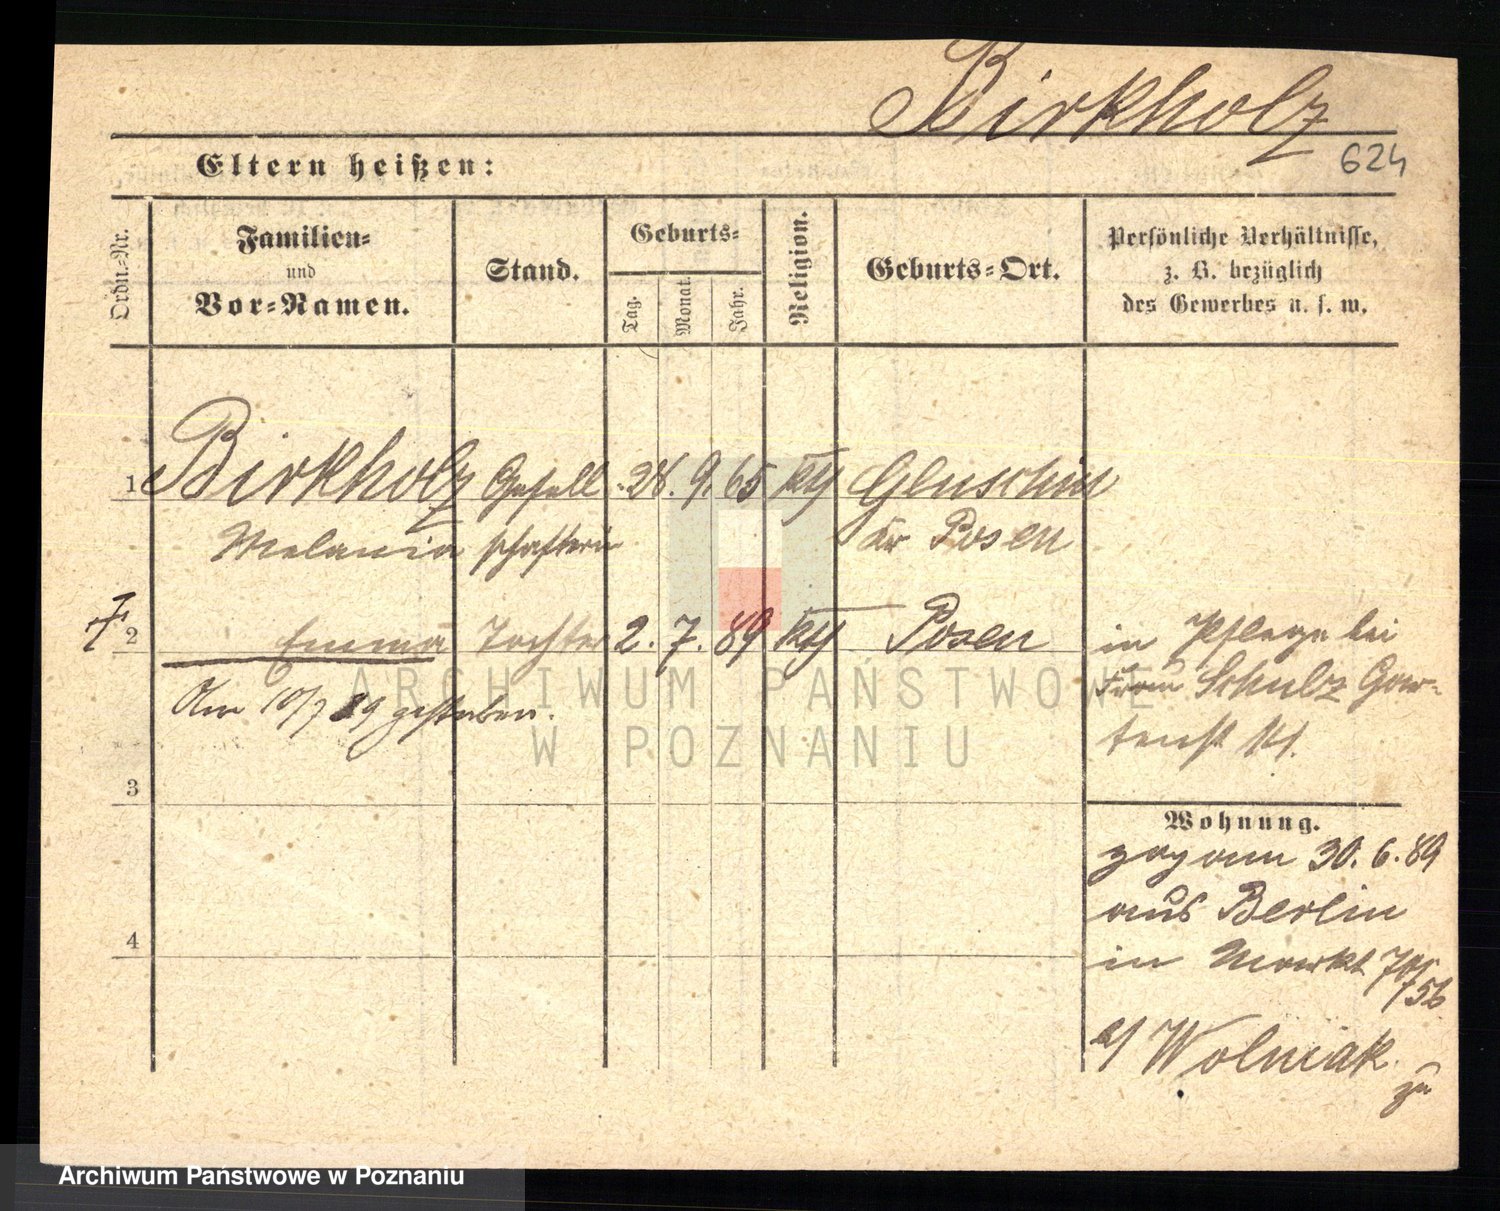 Birkholz
624
Eltern heißen:
Ordn.-Nr.
Familien-
und
Vor-Namen.
Stand.
Geburts-
Tag.
Monat.
Jahr.
Religion.
Geburts-Ort.
Persönliche Verhältnisse,
z. B. bezüglich
des Gewerbes u. s. w.
1 Birkholz Gesell 28. 9. 65 kth Gluschin
Melania schafterin Kr Posen
2 Emma Tochter 2. 7. 89 kth Posen
in Pflege bei
Frau Schulz Gar-
tenst
Am 10/7 89 gestorben.
3
Wohnung.
zog am 30. 6. 89
aus Berlin
in Markt
4
b/ Wolniak
zu
ARCHIWUM PAŃSTWOWE
W POZNANIU
Archiwum Państwowe w Poznaniu